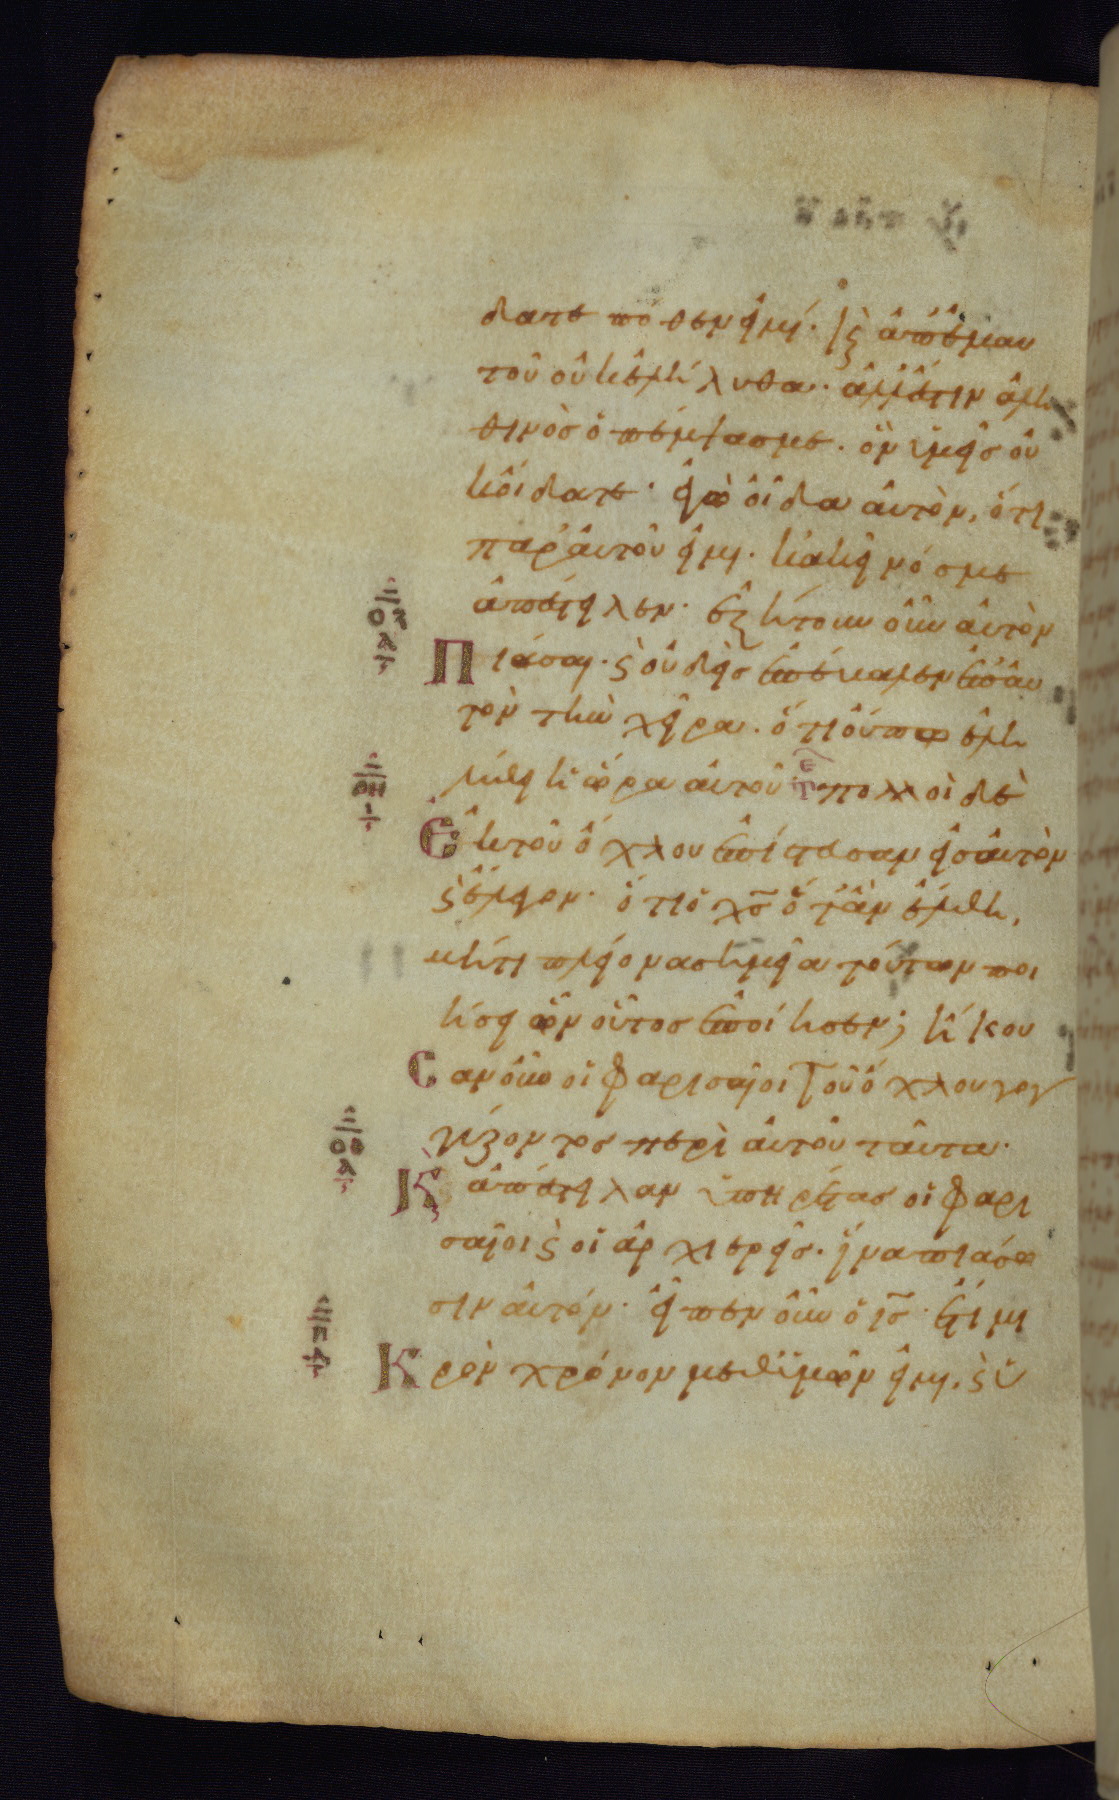 δατε πόθεν εἰμί· κ(αὶ) ἀπ' ἐμαυ
τοῦ οὐκ ἐλήλυθα· ἀλλ' ἔστιν ἀλη
θινὸς ὁ πέμψας με· ὃν ὑμεῖς οὐ
κ οἴδατε· ἐγὼ οἶδα αὐτὸν, ὅτι
παρ' αὐτοῦ εἰμι· κἀκεῖνός με
ἀπέστειλεν· ἐζήτουν οὖν αὐτὸν
Πιάσαι· κ(αὶ) οὐδεὶς ἐπέβαλεν ἐπ' αὐ
τὸν τὴν χεῖρα· ὅτι οὔπω ἐλη
λύθει ἡ ὥρα αὐτοῦ πολλοὶ δὲ
Ἐκ τοῦ ὄχλου ἐπίστευσαν εἰς αὐτὸν
κ(αὶ) ἔλεγον· ὅτι ὁ χ̅ς̅ ὅταν ἔλθη,
μήτι πλείονα σημεῖα τούτων ποι
ήσει ὧν οὗτος ἐποίησεν; ἤκου
Σαν οὖν οἱ φαρισαῖοι τοῦ ὄχλου γογ
γύζοντος περὶ αὐτοῦ ταῦτα·
Κ(αὶ) ἀπέστειλαν ὑπηρέτας οἱ φαρι
σαῖοι κ(αὶ) οἱ ἀρχιερεῖς· ἵνα πιάσω
σιν αὐτόν· εἶπεν οὖν ὁ ι̅ς̅· ἔτι μι
Κρὸν χρόνον μεθ' ὑμῶν εἰμι, κ(αὶ) ὑ